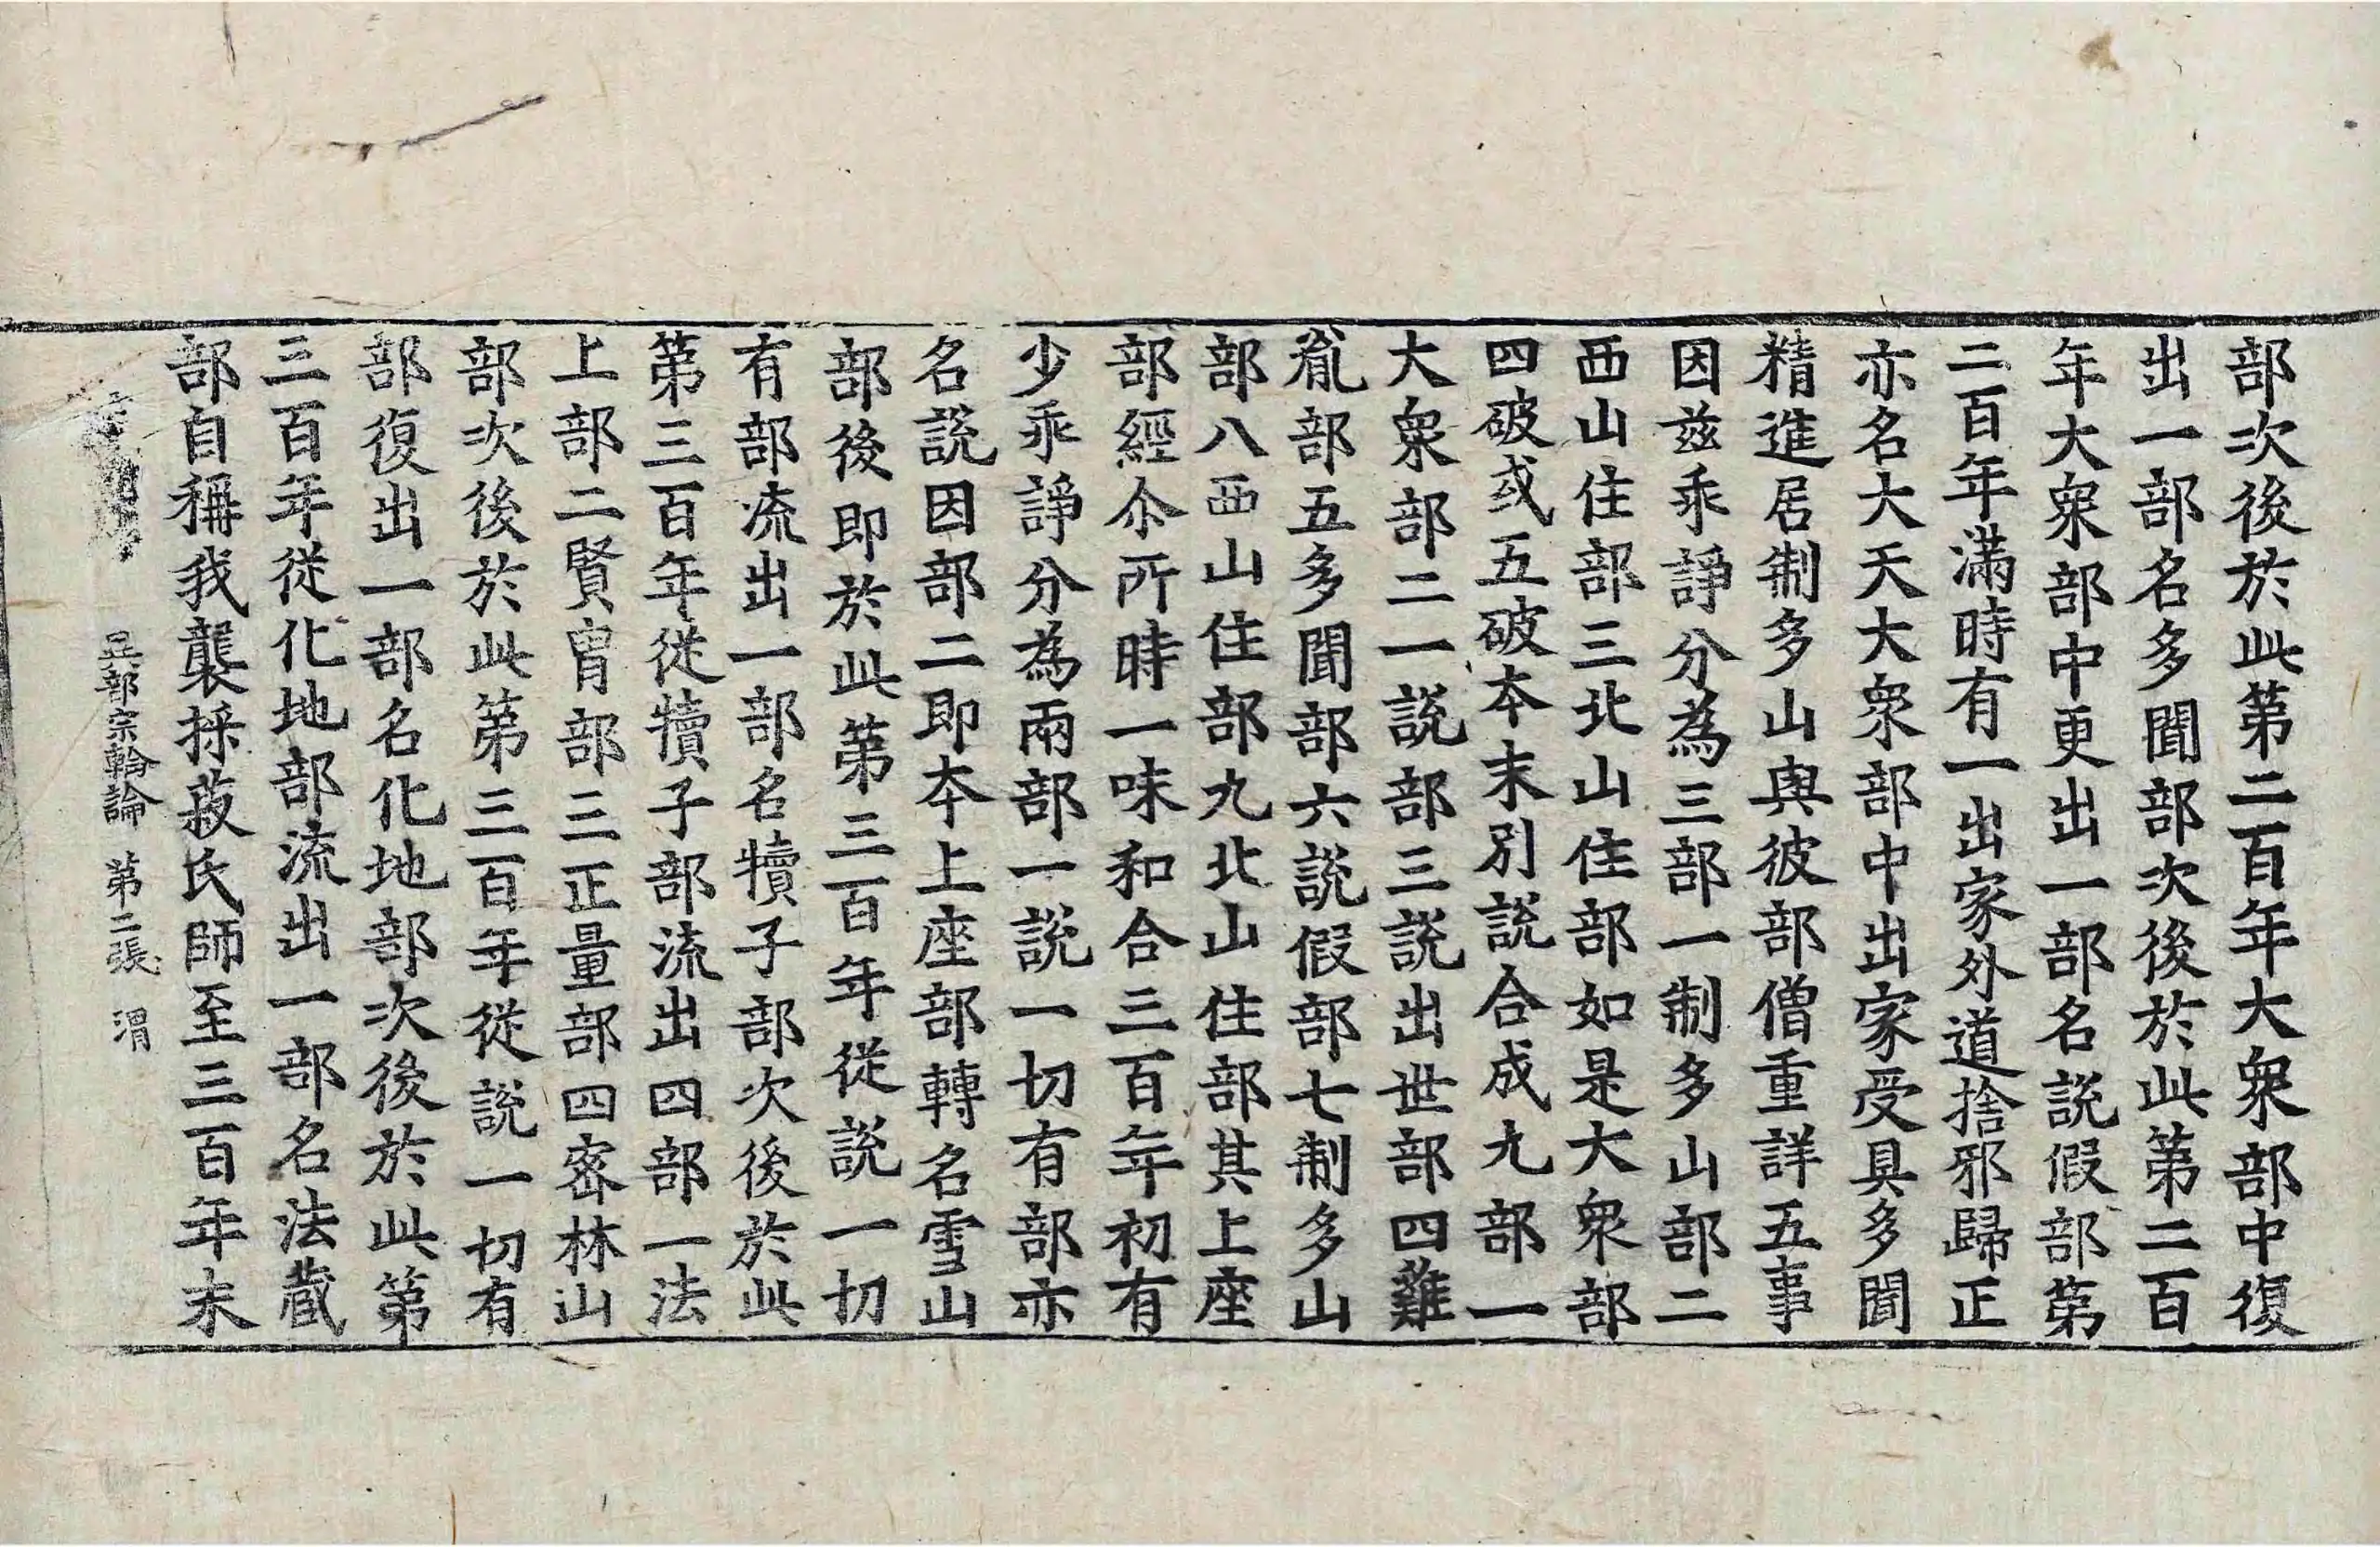 部次後於此第二百年大衆部中復
出一部名多聞部次後於此第二百
年大衆部中更出一部名說假部第
二百年滿時有一出家外道捨邪歸正
亦名大天大衆部中出家受具多聞
精進居制多山與彼部僧重詳五事
因兹乖諍分為三部一制多山部二
西山住部三北山住部如是大衆部
四破或五破本末別說合成九部一
大衆部二一說部三說出世部四雞
胤部五多聞部六說假部七制多山
部八西山住部九北山住部其上座
部經尒所時一味和合三百年初有
少乖諍分為兩部一說一切有部亦
名說因部二即本上座部轉名雪山
部後即於此第三百年從說一切
有部流出一部名犢子部次後於此
第三百年從犢子部流出四部一法
上部二賢胄部三正量部四密林山
部次後於此第三百年從說一切有
部復出一部名化地部次後於此第
三百年從化地部流出一部名法藏
部自稱我襲採菽氏師至三百年末
異部宗輪論 第二張 渭